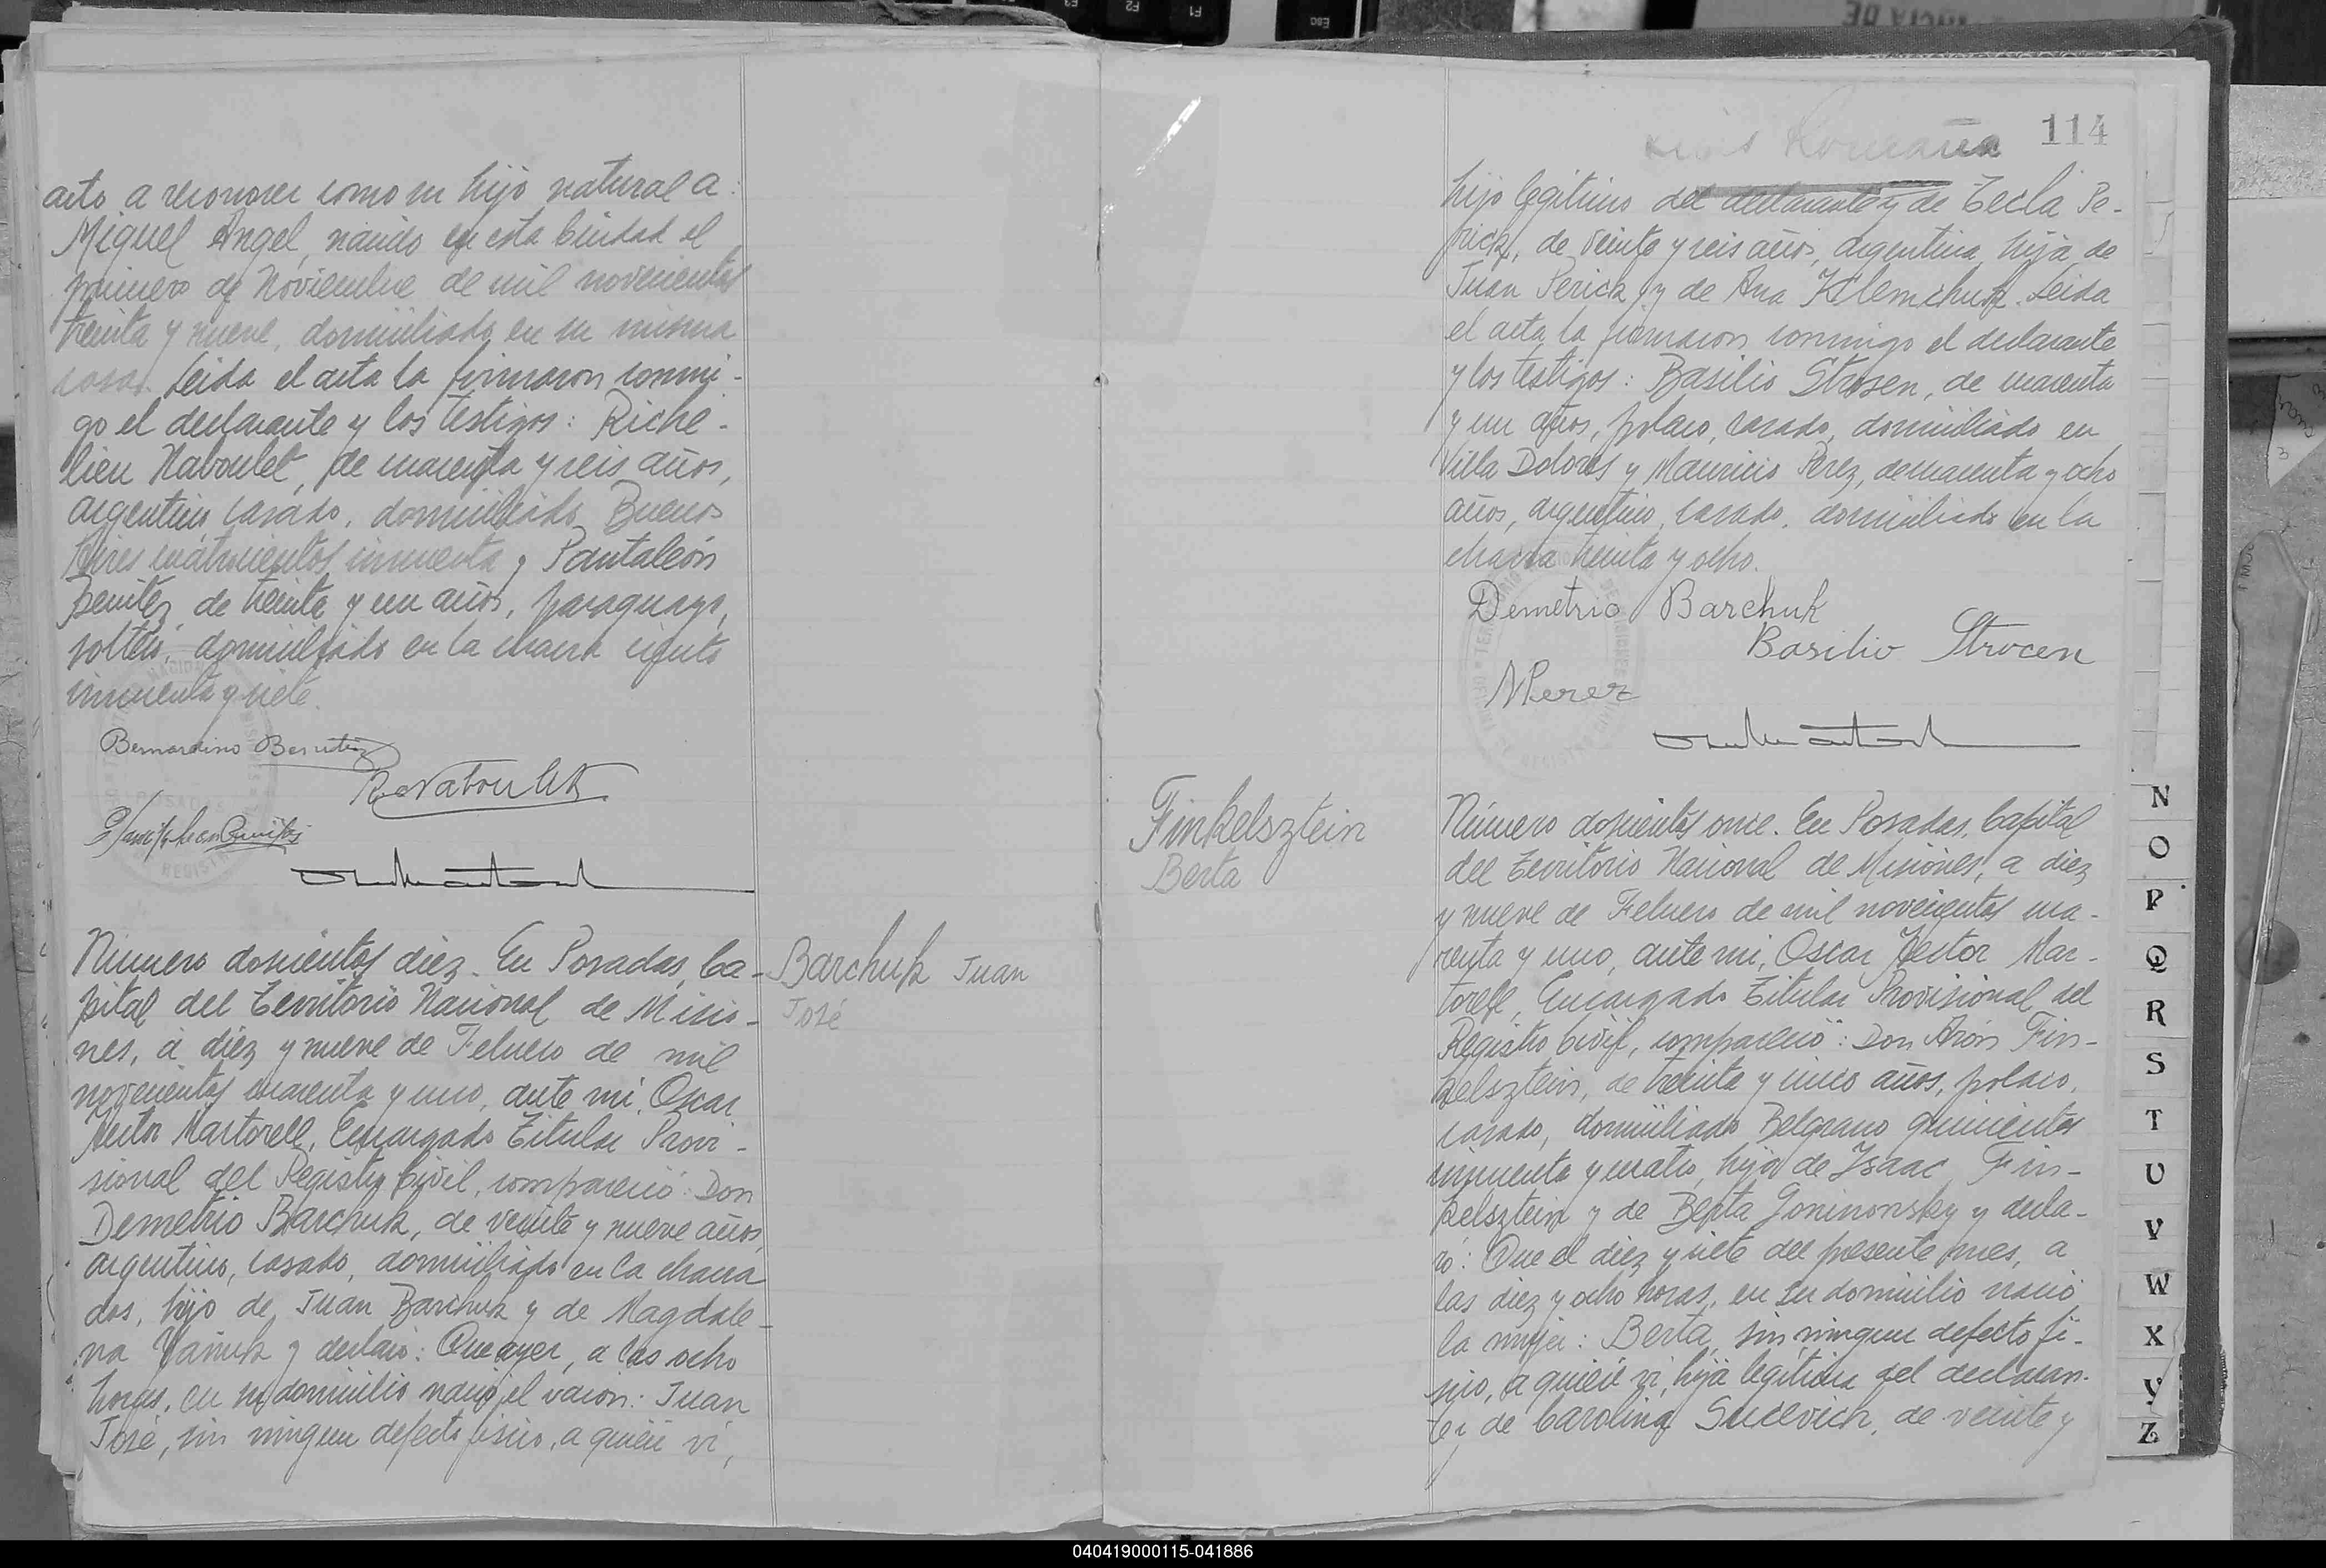 acto a reconocer como su hijo natural a:
Miguel Angel, nacido en esta Ciudad el
primero de Noviembre de mil novecientos
treinta y nueve, domiciliado en su misma
casa. Leida el acta la firmaron conmi-
go el declarante y los testigos: Riche-
lieu Naboulet, de cuarenta y seis años,
argentino, casado, domiciliado Buenos
Aires cuatrocientos cincuenta y Pantaleón
Benitez, de treinta y un años, paraguayo,
soltero, domiciliado en la chacra ciento
cincuenta y siete.
Bernardino Benitez
R. Naboulet
Número doscientos diez. En Posadas, Ca-
pital del Territorio Nacional de Misio-
nes, a diez y nueve de Febrero de mil
novecientos cuarenta y uno, ante mi, Oscar
Hector Martorell, Encargado Titular Provi-
sional del Registro Civil, compareció: Don
Demetrio Barchuk, de veinte y nueve años,
argentino, casado, domiciliado en la chacra
dos, hijo de Juan Barchuk y de Magdale-
na Yañuk y declaró: Que ayer, a las ocho
horas, en su domicilio nació el varón: Juan
José, sin ningun defecto fisico, a quien vi,
Barchuk Juan
José
114
hijo legitimo del declarante y de Tecla Pe-
rick, de veinte y seis años, argentina, hija de
Juan Perick y de Ana Klemchuk. Leida
el acta la firmaron conmigo el declarante
y los testigos: Basilio Strosen, de cuarenta
y un años, polaco, casado, domiciliado en
Villa Dolores y Mauricio Perez, de cuarenta y ocho
años, argentino, casado, domiciliado en la
chacra treinta y ocho.
Demetrio Barchuk
Basilio Strocen
MPerez
Finkelsztein
Berta
Número doscientos once. En Posadas, Capital
del Territorio Nacional de Misiones, a diez
y nueve de Febrero de mil novecientos cua-
renta y uno, ante mi, Oscar Hector Mar-
torell, Encargado Titular Provisional del
Registro Civil, compareció: Don Arón Fin-
kelsztein, de treinta y cinco años, polaco,
casado, domiciliado Belgrano quinientos
cincuenta y cuatro, hijo de Isaac Fin-
kelsztein y de Berta Goninonsky y decla-
ró: Que el diez y siete del presente mes, a
las diez y ocho horas, en su domicilio nació
la mujer: Berta, sin ningun defecto fi-
sico, a quien vi, hija legitima del declaran-
te y de Carolina Sucevich, de veinte y
N
O
P
Q
R
S
T
U
V
W
X
Y
Z
040419000115-041886